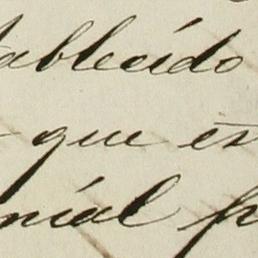 tablecido
que es
nial p